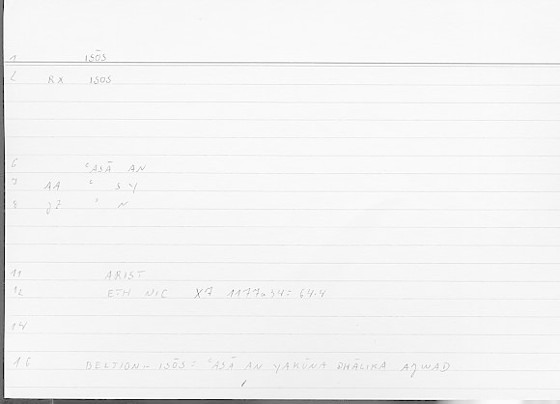 1 ISŌS
2 RX ISOS
6 ʿASĀ AN
7 AA ʿ S Y
8 JZ ʿ N
11 ARIST
12 ETH NIC X7 1177a34 = 64.4
14
16 BELTION - ISŌS = ʿASĀ AN YAKŪNA DHĀLIKA AJWAD